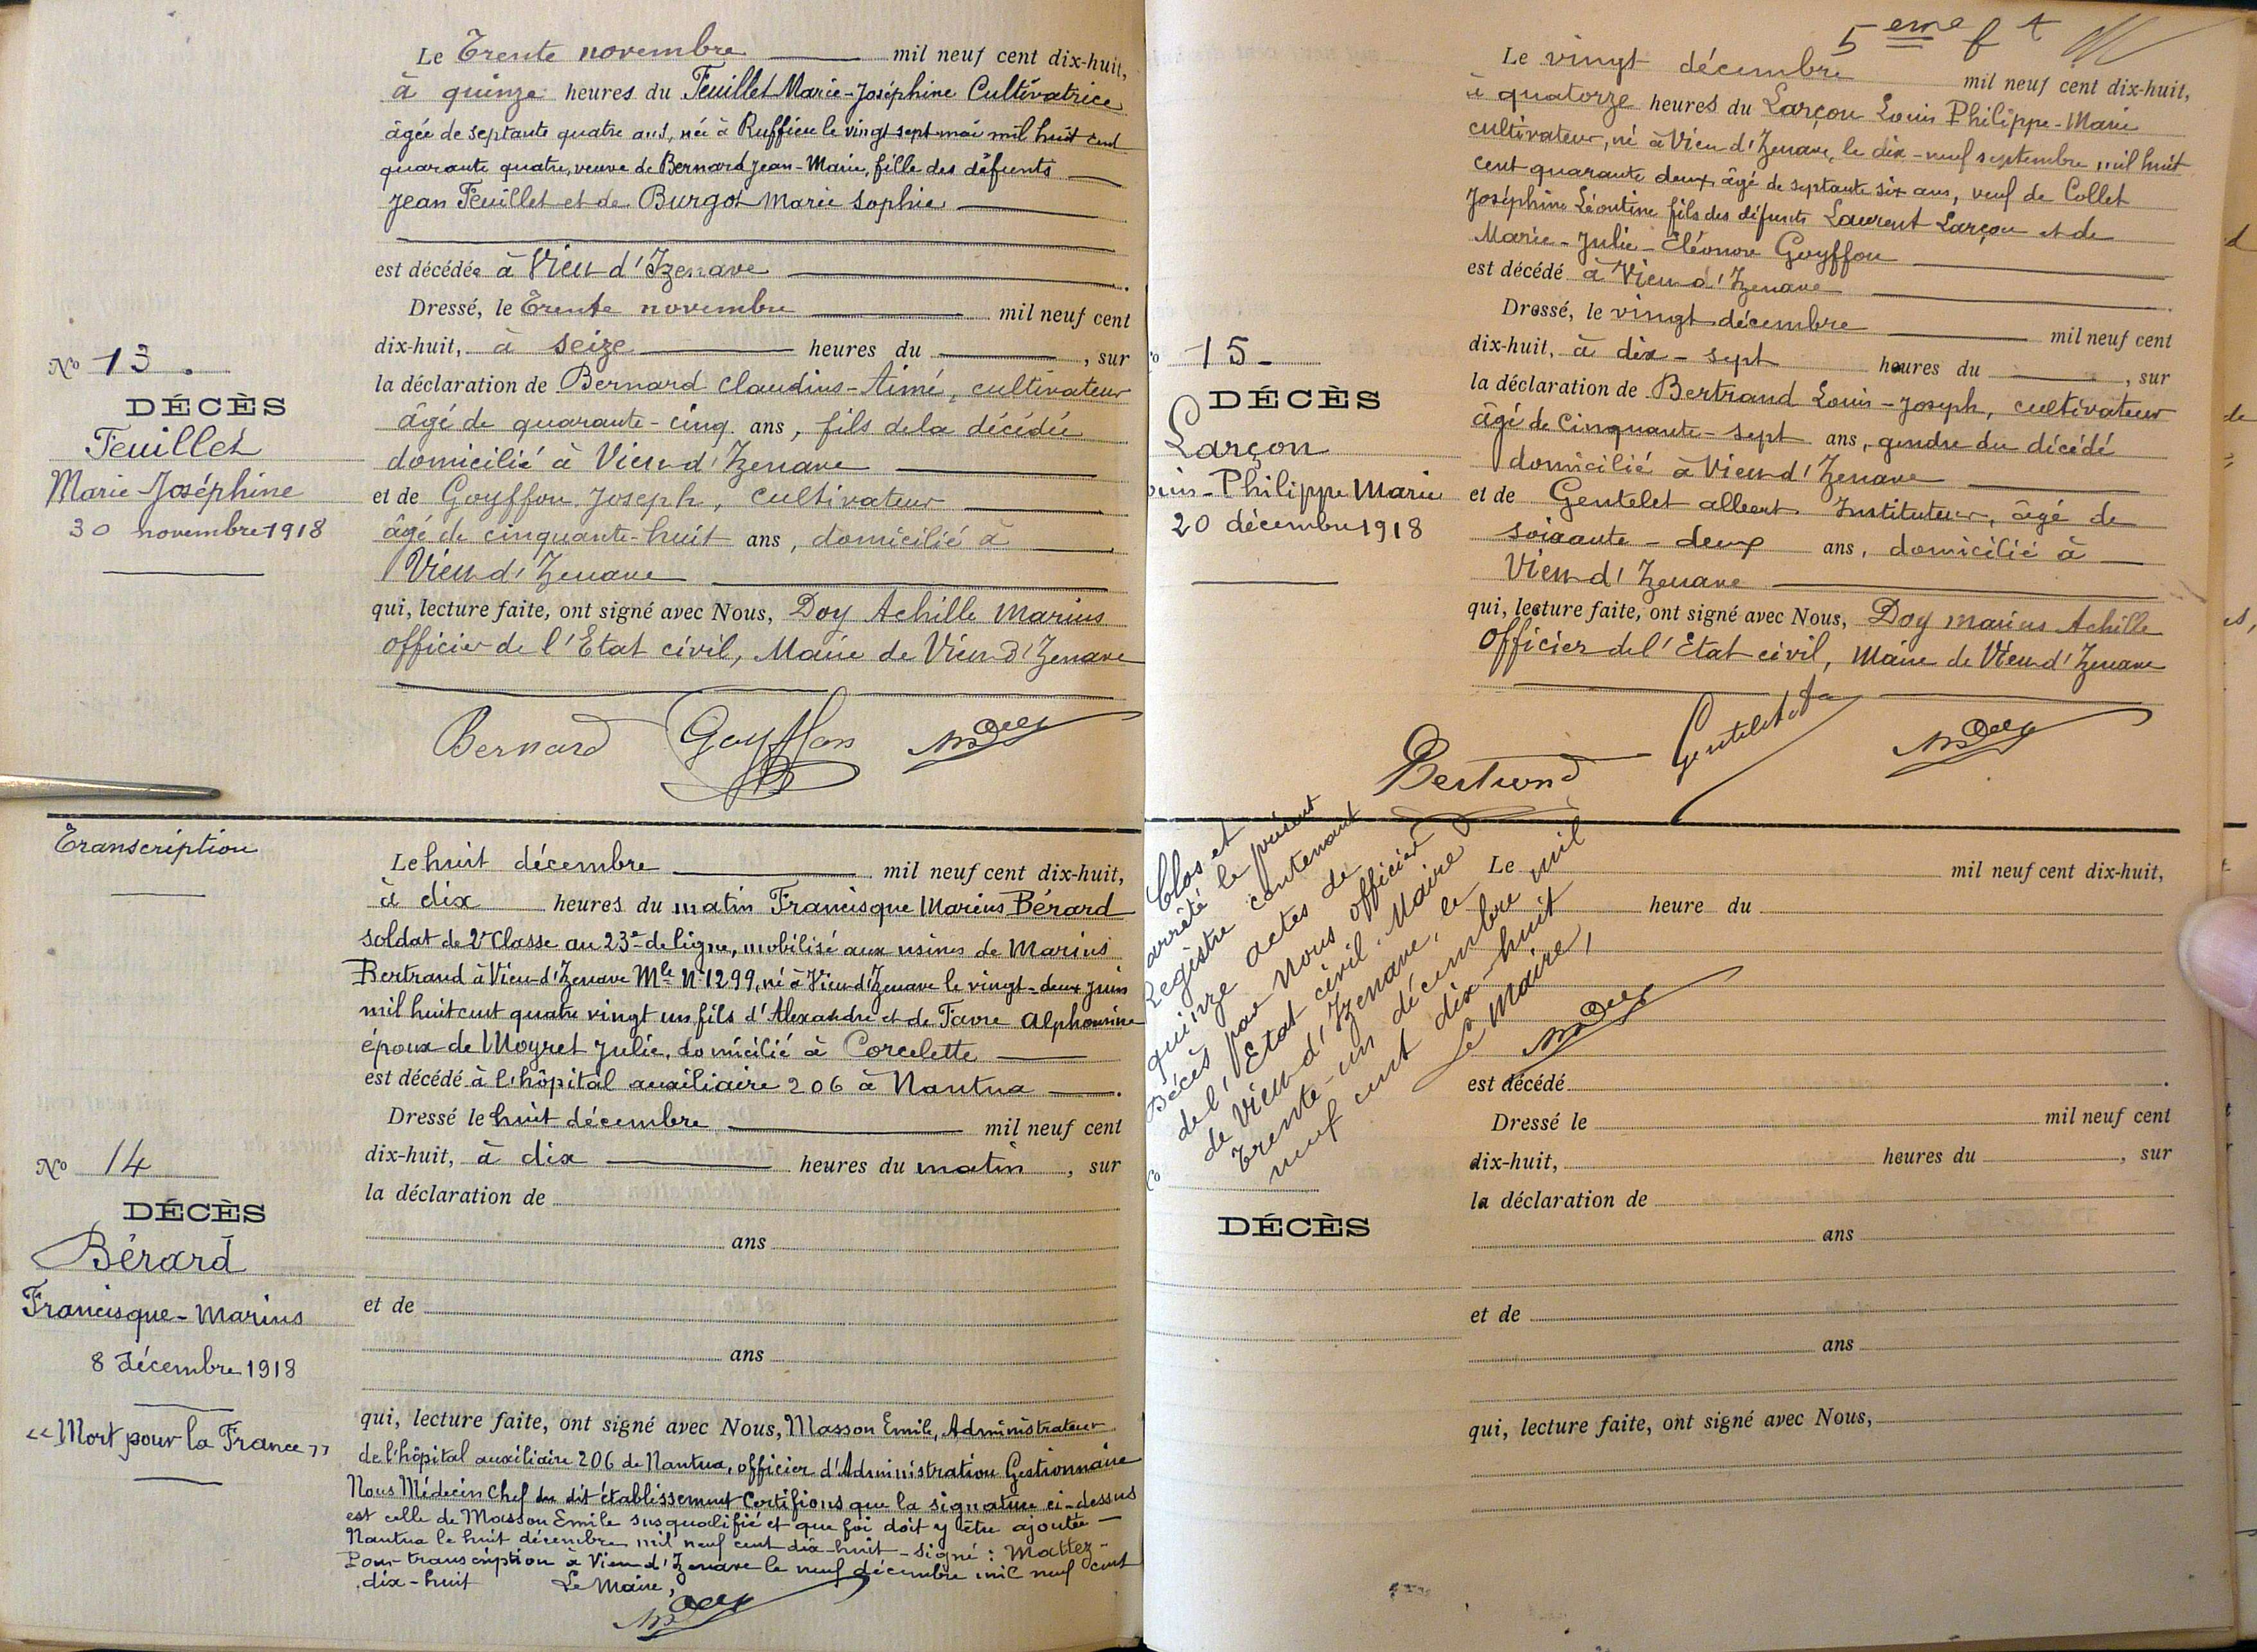 Le Trente novembre mil neuf cent dix-huit,
à quinze heures du Feuillet Marie-Joséphine Cultivatrice
âgée de septante quatre ans, née à Ruffieu le vingt sept mai mil huit cent
quarante quatre, veuve de Bernard Jean-Marie, fille des défunts
Jean Feuillet et de Burgot Marie Sophie
est décédée à Vieu d'Izenave
Dressé, le Trente novembre mil neuf cent
dix-huit, à seize heures du , sur
la déclaration de Bernard Claudius-Aimé, cultivateur
âgé de quarante-cinq ans, fils de la décédée
domicilié à Vieu d'Izenave
et de Goyffon Joseph, cultivateur
âgé de cinquante-huit ans, domicilié à
Vieu d'Izenave
qui, lecture faite, ont signé avec Nous, Doy Achille Marius
officier de l'Etat civil, Maire de Vieu d'Izenave
No 13.
DÉCÈS
Feuillet
Marie-Joséphine
30 novembre 1918
Bernard Goyffon
Transcription
Le huit décembre mil neuf cent dix-huit,
à dix heures du matin Francisque Marius Bérard
soldat de 2e Classe au 23e de ligne, mobilisé aux usines de Marius
Bertrand à Vieu d'Izenave Mle No 1299, né à Vieu d'Izenave le vingt-deux juin
mil huit cent quatre vingt un fils d'Alexandre et de Favre Alphonsine
époux de Moyret Julie, domicilié à Corcelette
est décédé à l'hôpital auxiliaire 206 à Nantua
Dressé le huit décembre mil neuf cent
dix-huit, à dix heures du matin, sur
la déclaration de
ans
et de
ans
qui, lecture faite, ont signé avec Nous, Masson Emile, Administrateur
de l'hôpital auxiliaire 206 de Nantua, officier d'Administration Gestionnaire
Nous Médecin Chef du dit établissement Certifions que la signature ci-dessus
est celle de Masson Emile susqualifié et que foi doit y être ajoutée
Nantua le huit décembre mil neuf cent dix-huit - signé : Mattez -
Pour transcription à Vieu d'Izenave le neuf décembre mil neuf cent
dix-huit Le Maire,
No 14
DÉCÈS
Bérard
Francisque-Marius
8 décembre 1918
"Mort pour la France"
5eme
Le vingt décembre mil neuf cent dix-huit,
à quatorze heures du Larçon Louis Philippe-Marie
cultivateur, né à Vieu d'Izenave, le dix-neuf septembre mil huit
cent quarante deux, âgé de septante six ans, veuf de Collet
Joséphine Léontine fils des défunts Laurent Larçon et de
Marie-Julie-Eléonore Goyffon
est décédé à Vieu d'Izenave
Dressé, le vingt décembre mil neuf cent
dix-huit, à dix-sept heures du , sur
la déclaration de Bertrand Louis-Joseph, cultivateur
âgé de Cinquante-sept ans, gendre du décédé
domicilié à Vieu d'Izenave
et de Gentelet albert Instituteur, âgé de
soixante-deux ans, domicilié à
Vieu d'Izenave
qui, lecture faite, ont signé avec Nous, Doy Marius Achille
Officier de l'Etat civil, Maire de Vieu d'Izenave
15-
DÉCÈS
Larçon
ouis-Philippe Marie
20 décembre 1918
Bertrand Gentelet
Clos et
arrêté le présent
Registre contenant
quinze actes de
Décès par nous officier
de l'Etat civil, Maire
de Vieu d'Izenave, le
trente-un décembre mil
neuf cent dix-huit
Le Maire,
Le mil neuf cent dix-huit,
heure du
est décédé
Dressé le mil neuf cent
dix-huit, heures du , sur
la déclaration de
ans
et de
ans
qui, lecture faite, ont signé avec Nous,
DÉCÈS